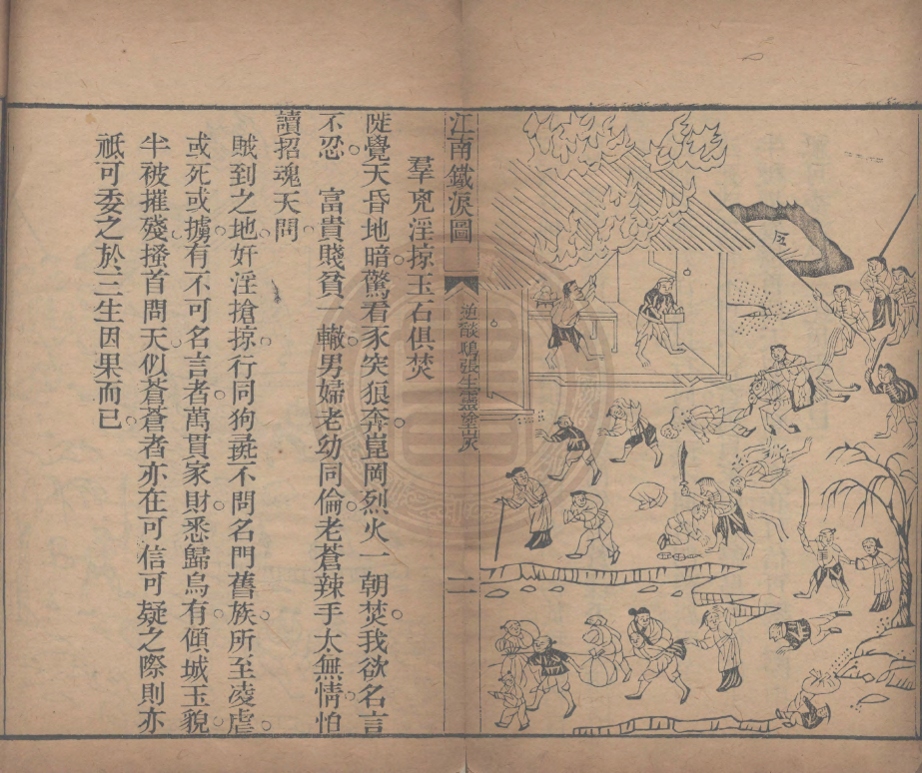 江南鐵淚圖
逆燄鴟張生靈塗炭
二
羣兇淫掠玉石俱焚
陡覺天昏地暗驚看豕突狼奔崑岡烈火一朝焚我欲名言
不忍　富貴賤貧一轍男婦老幼同倫老蒼辣手太無情怕
讀招魂天問
賊到之地奸淫搶掠行同狗彘不問名門舊族所至凌虐
或死或擄有不可名言者萬貫家財悉歸烏有傾城玉貌
半被摧殘搔首問天似蒼蒼者亦在可信可疑之際則亦
祗可委之於三生因果而已